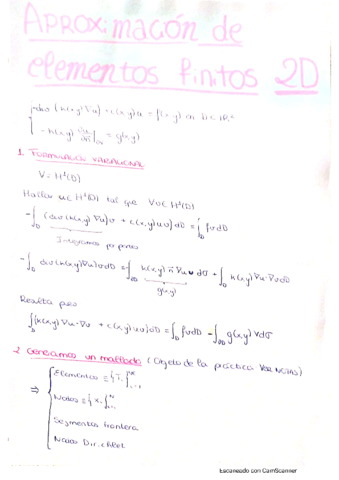 APROXIMACIÓN de
elementos finitos 2D
(k(x,y)∇u) + c(x,y)u = f(x,y) en D ⊂ ℝ²
- k(x,y) ∂u/∂n|∂D = g(x,y)
1. FORMULACIÓN VARIACIONAL
V = H¹(D)
Hallar u ∈ H¹(D) tal que ∀v ∈ H¹(D)
-∫_D (div(k(x,y)∇u)v + c(x,y)uv)dD = ∫_D fvdD
Integramos por partes
-∫_D div(k(x,y)∇u)vdD = ∫_∂D k(x,y) n ∇u v dσ + ∫_D k(x,y)∇u·∇vdD
g(x,y)
Resulta pues
∫_D (k(x,y)∇u·∇v + c(x,y)uv)dD = ∫_D fvdD - ∫_∂D g(x,y)vdσ
2. Generamos un mallado (Objeto de la práctica VER NOTAS)
⇒ Elementos ≡ {T}
Nodos ≡ {x}
Segmentos frontera
Nodos Dir.
Escaneado con CamScanner